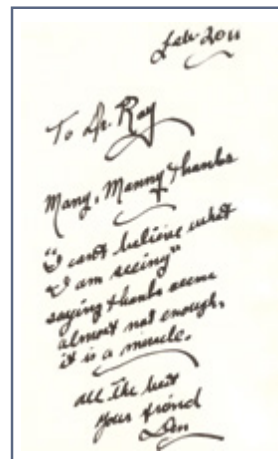 Feb 2011
To Dr. Ray
Many, Manny thanks
"I can't believe what
I am seeing"
saying thanks seems
almost not enough,
it is a miracle.
all the best
your friend